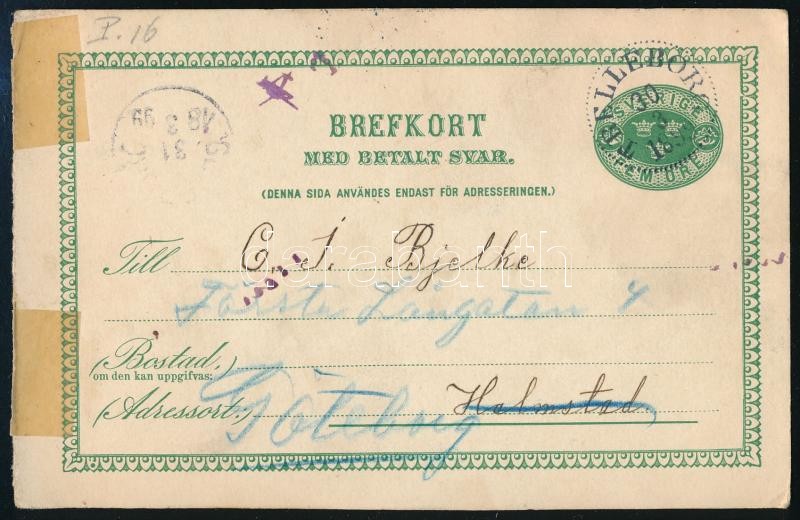 I. 16
TRELLEBORG
30
3
SVERIGE
FEM ÖRE
31
3
BREFKORT
MED BETALT SVAR.
(DENNA SIDA ANVÄNDES ENDAST FÖR ADRESSERINGEN.)
Till C. J. Bjelke
darabanth
Första Långatan 4
(Bostad,
om den kan uppgifvas:
(Adressort:) Halmstad
Göteborg